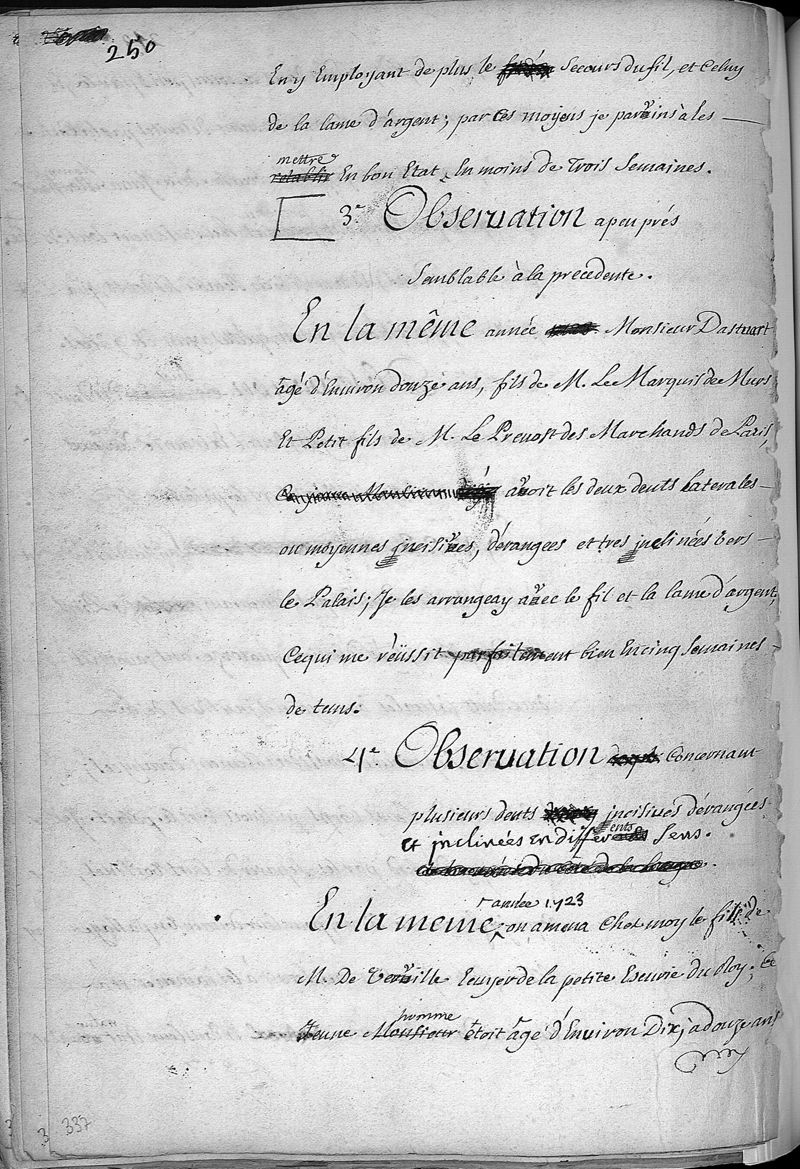 250
En y Employant de plus le secours du fil, et Celuy
de la lame d'argent; par Ces moyens je parvins à les
mettre
retablir En bon Etat, En moins de Trois Semaines.
3.e Observation a peu prés
Semblable à la precedente.
En la même année Monsieur Dastuart
agé d'Environ douze ans, fils de M. Le Marquis de Murs
Et Petit fils de M. Le Prevost des Marchands de Paris
avoit les deux dents Laterales
ou moyennes incisives, dérangées et tres inclinées vers
le Palais; Je les arrangeay avec le fil et la lame d'argent,
Ce qui me réüssit parfaitement bien En cinq Semaines
de tems.
4.e Observation Concernant
plusieurs dents incisives dérangées
et inclinées en differents Sens.
année 1723
En la meme, on amena Chez moy le fils de
M. De Verville Ecuyer de la petite Escurie du Roy; Ce
homme
Jeune Monsieur étoit agé d'Environ Dix, a douze ans
337
3